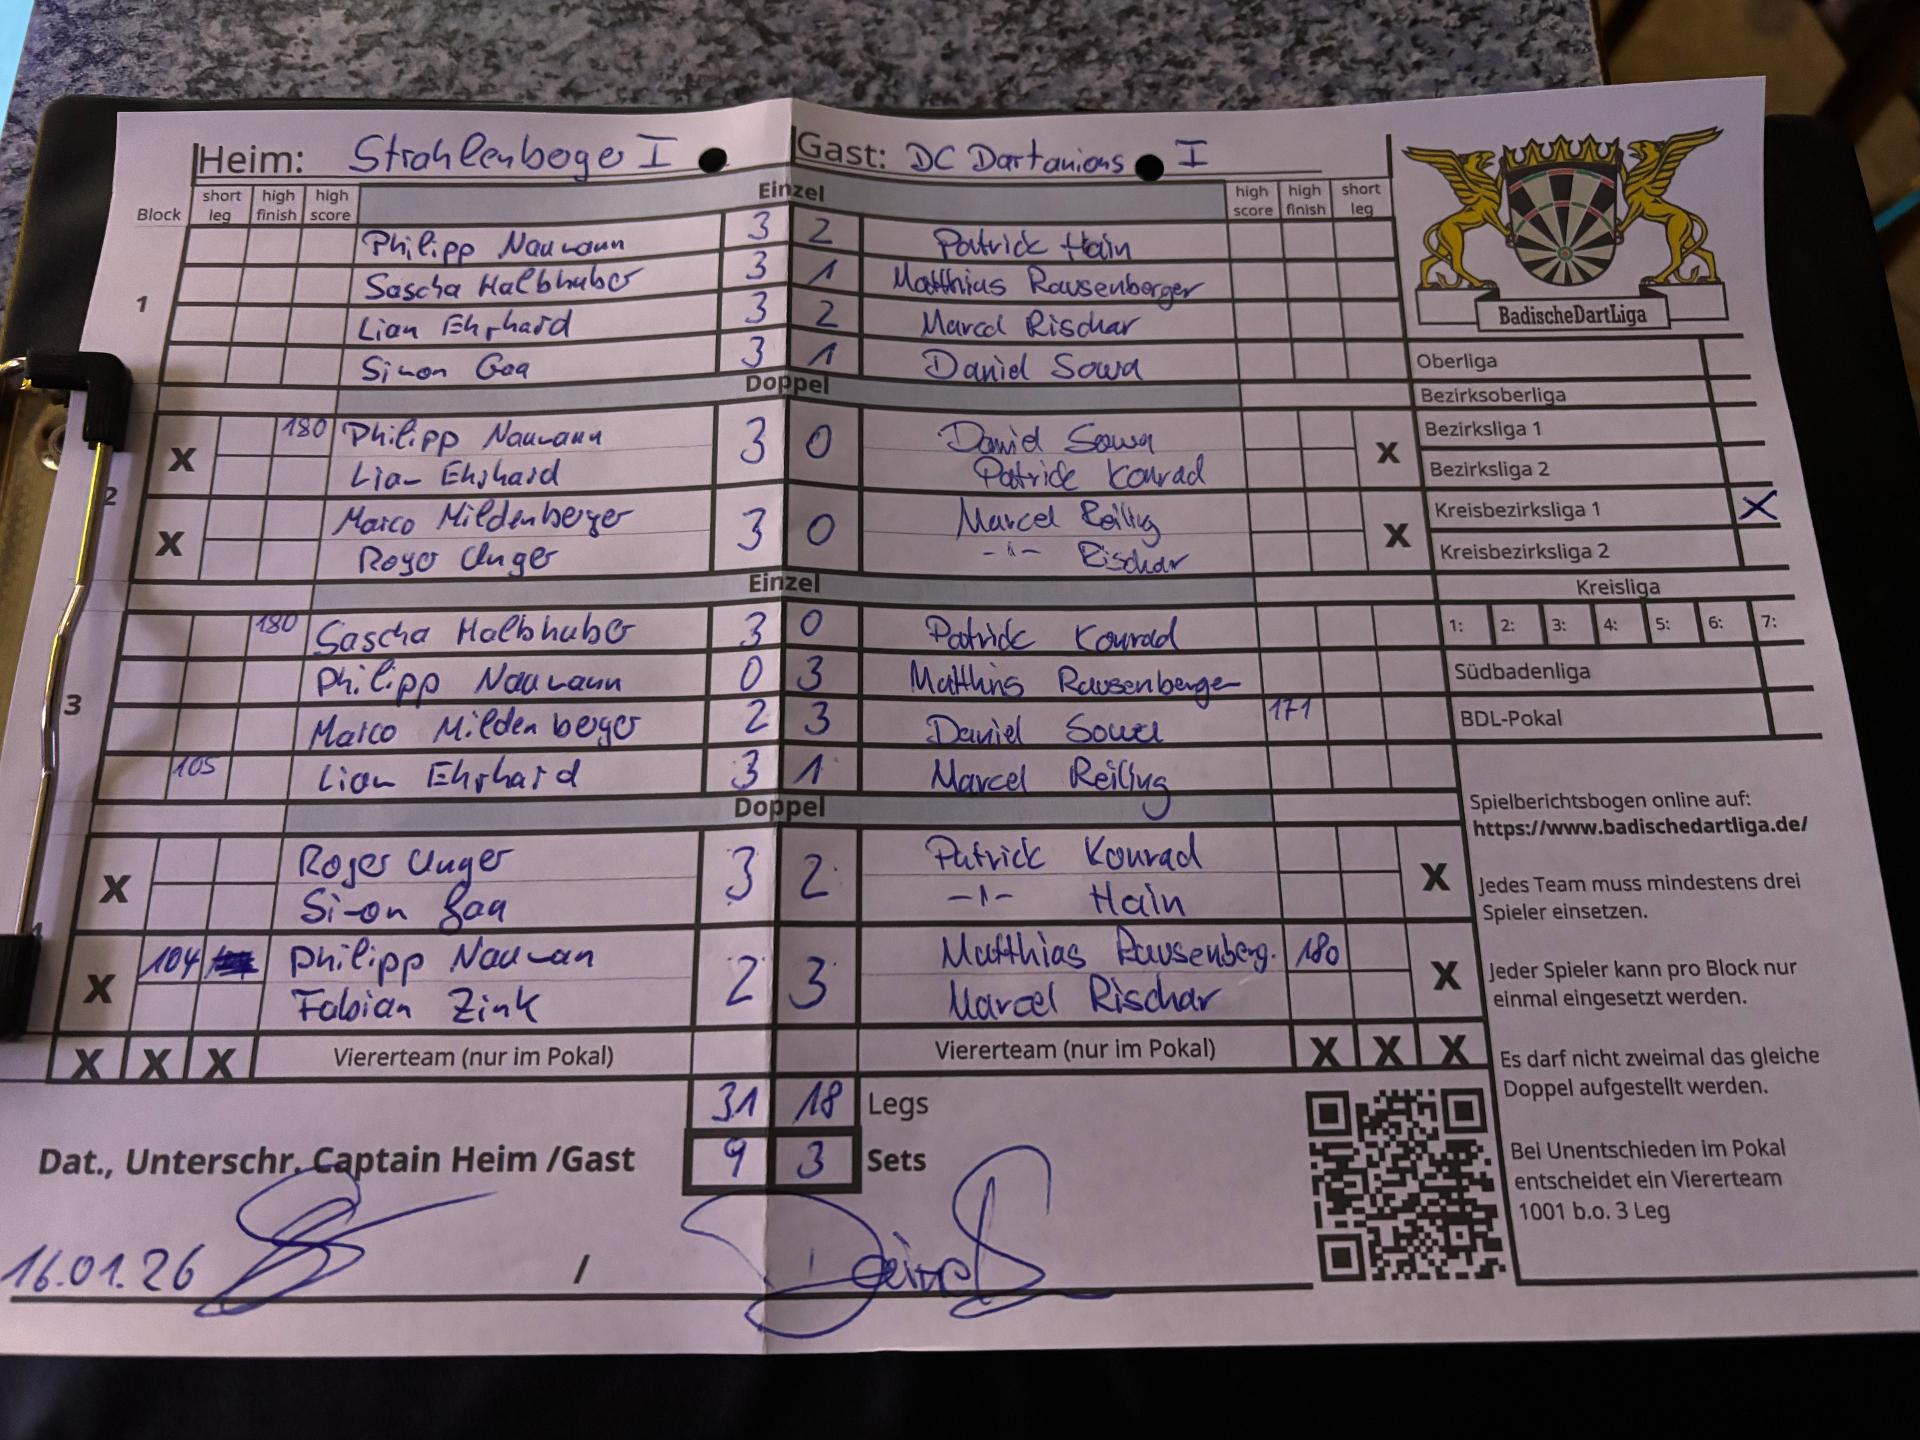 Heim: Strahlenberger I Gast: DC Dartanians I
Block short leg high finish high score Einzel high score high finish short leg
1
Philipp Naumann 3 2 Patrick Hain
Sascha Halbhuber 3 1 Matthias Rausenberger
Lian Ehrhard 3 2 Marcel Rischar
Simon Gaa 3 1 Daniel Sowa
Doppel
2
X 180 Philipp Naumann 3 0 Daniel Sowa X
Lian Ehrhard Patrick Konrad
X Marco Mildenberger 3 0 Marcel Reilig X
Roger Unger -ı- Rischar
Einzel
3
180 Sascha Halbhuber 3 0 Patrick Konrad
Philipp Naumann 0 3 Matthias Rausenberger
Marco Mildenberger 2 3 Daniel Sowa 171
105 Lian Ehrhard 3 1 Marcel Reilig
Doppel
4
X Roger Unger 3 2 Patrick Konrad X
Simon Gaa -ı- Hain
X 104 Philipp Nauman 2 3 Matthias Rausenberg. 180 X
Fabian Zink Marcel Rischar
X X X Viererteam (nur im Pokal) Viererteam (nur im Pokal) X X X
31 18 Legs
Dat., Unterschr. Captain Heim /Gast 9 3 Sets
16.01.26 /
BadischeDartLiga
Oberliga
Bezirksoberliga
Bezirksliga 1
Bezirksliga 2
Kreisbezirksliga 1 X
Kreisbezirksliga 2
Kreisliga
1: 2: 3: 4: 5: 6: 7:
Südbadenliga
BDL-Pokal
Spielberichtsbogen online auf:
https://www.badischedartliga.de/
Jedes Team muss mindestens drei
Spieler einsetzen.
Jeder Spieler kann pro Block nur
einmal eingesetzt werden.
Es darf nicht zweimal das gleiche
Doppel aufgestellt werden.
Bei Unentschieden im Pokal
entscheidet ein Viererteam
1001 b.o. 3 Leg